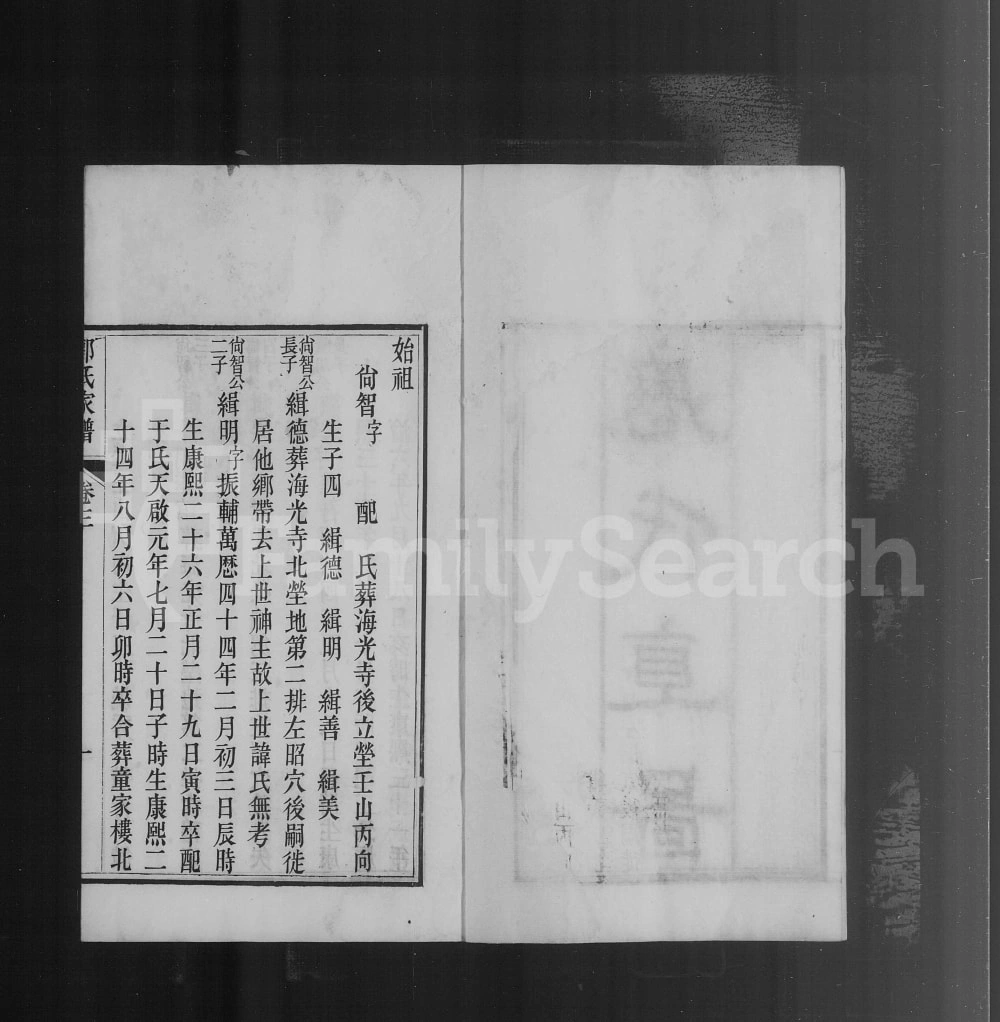 始祖
尙智字 配 氏葬海光寺後立塋壬山丙向
生子四 緝德 緝明 緝善 緝美
尙智公長子 緝德葬海光寺北塋地第二排左昭穴後嗣徙
居他鄉帶去上世神主故上世諱氏無考
尙智公二子 緝明字振輔萬歷四十四年二月初三日辰時
生康熙二十六年正月二十九日寅時卒配
于氏天啟元年七月二十日子時生康熙二
十四年八月初六日卯時卒合葬童家樓北
氏家譜 卷三 一
FamilySearch